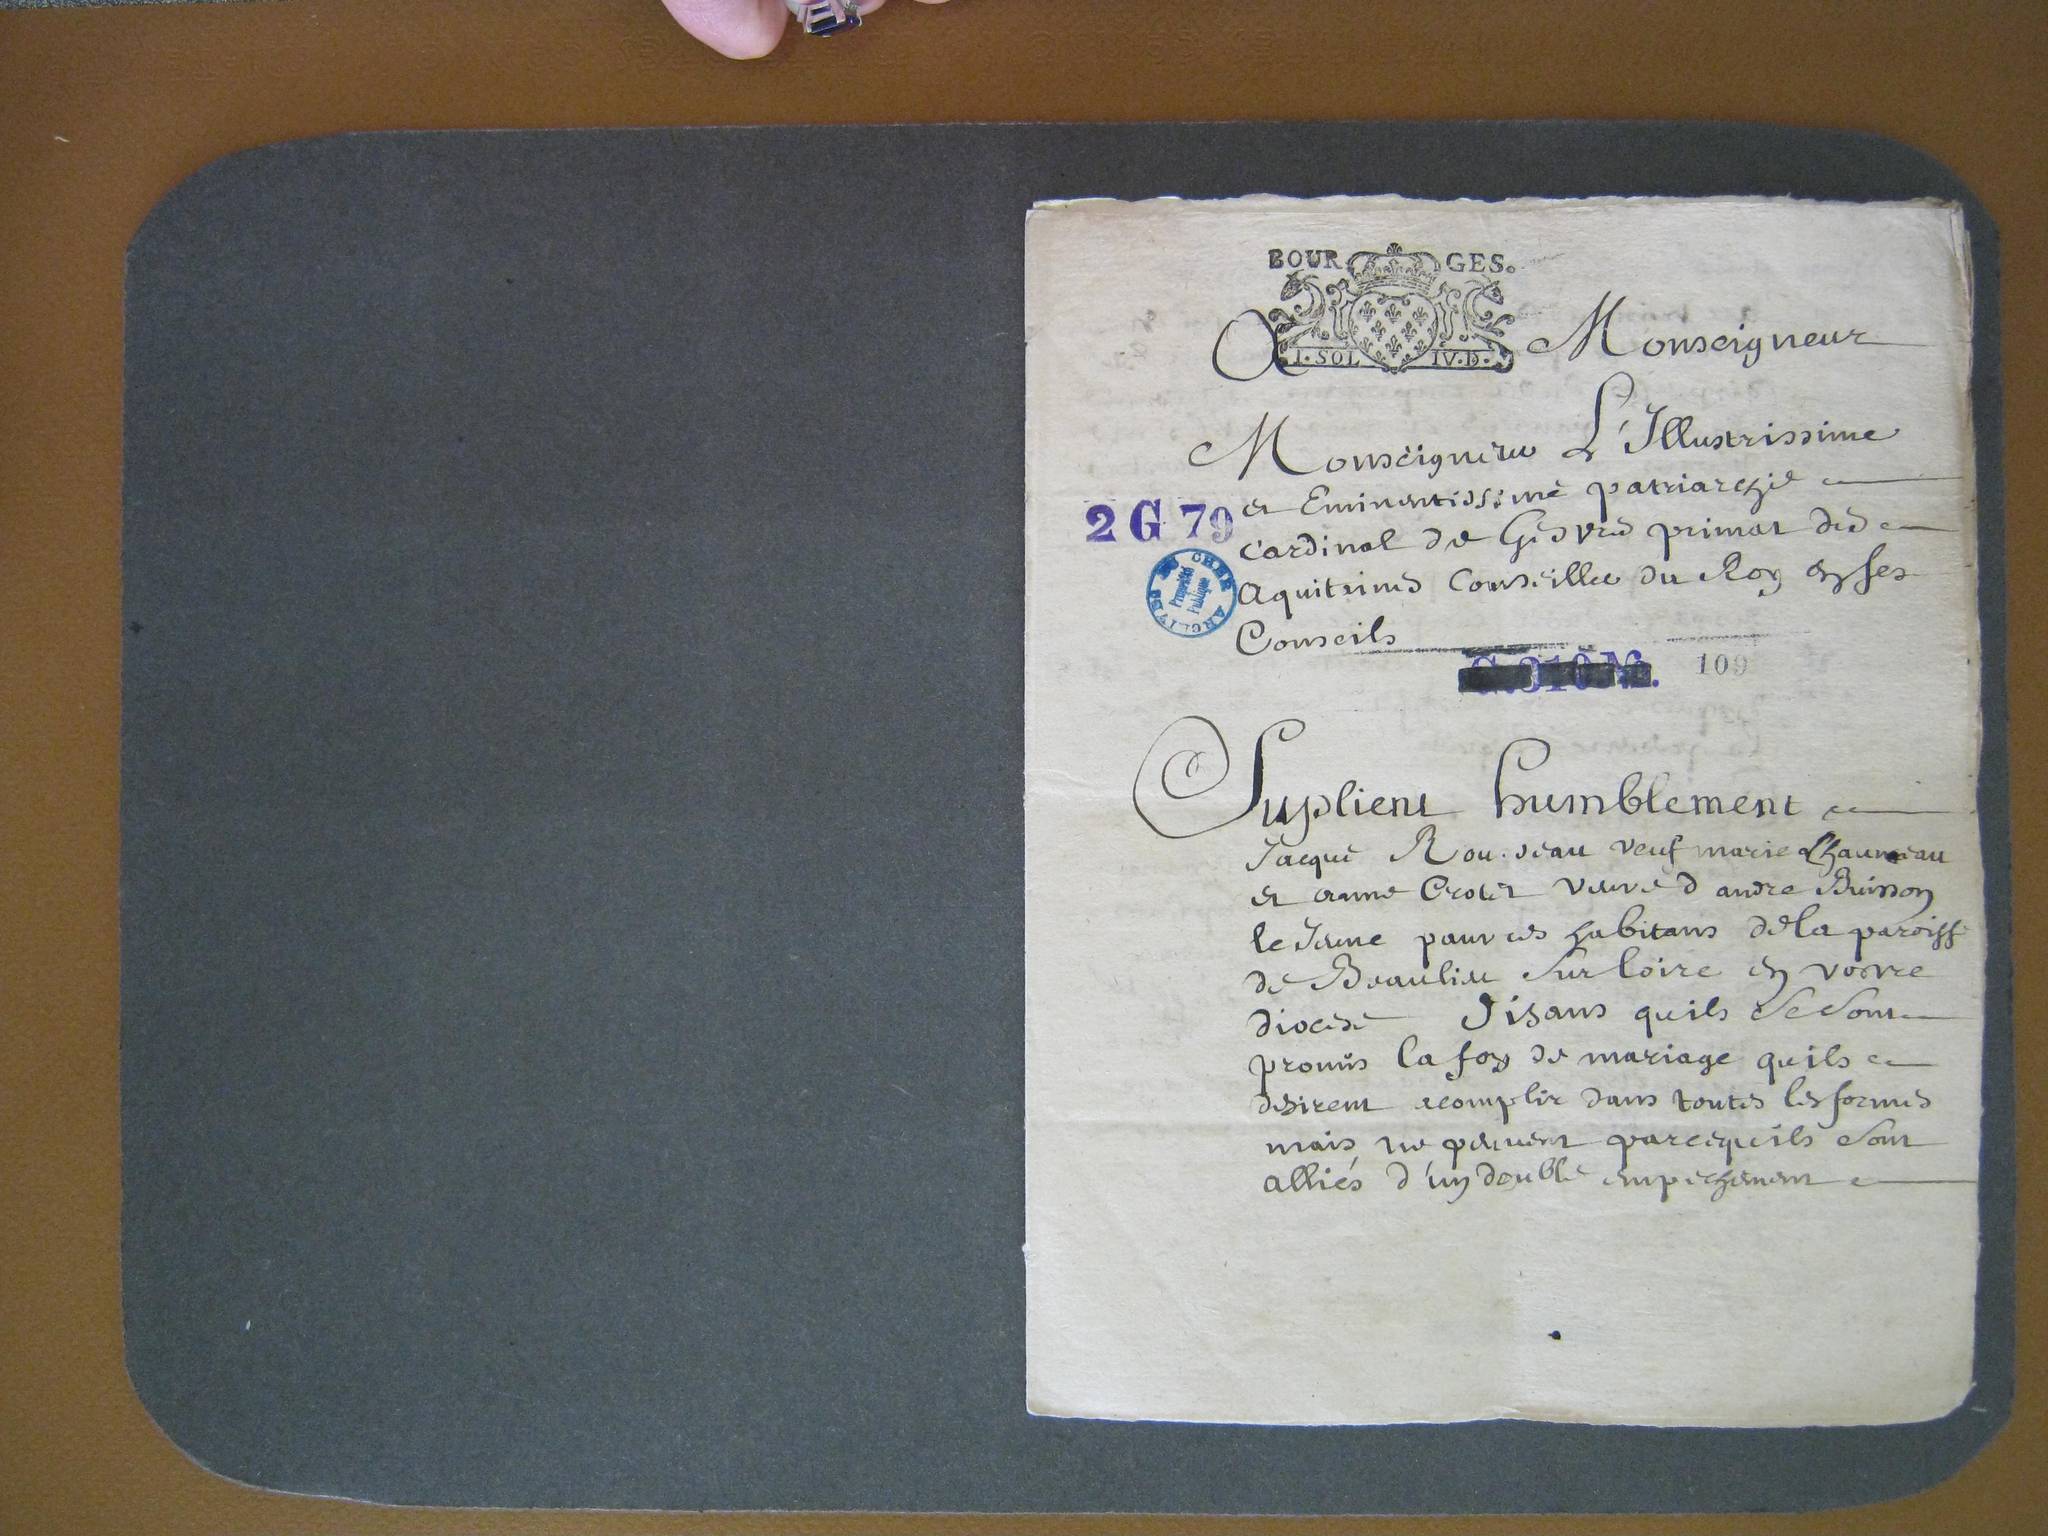 BOURGES.
A Monseigneur
I. SOL IV. D.
Monseigneur L'Illustrissime
et Eminentissime patriarche
2 G 79
Cardinal de Gesvres primat des
Aquitaines Conseiller du Roy en ses
Conseils
ARCHIVES DU CHER
Propriété
Publique
109
Suplient humblement
Jacque Rousseau veuf marie Chaumeau
et anne Crotet veuve d'andre Buisson
le Jeune pauvres habitans de la paroisse
de Beaulieu sur loire en vostre
diocese Disans quils se sont
promis la foy de mariage quils
desirent acomplir dans toutes les formes
mais ne peuvent parcequils sont
alliés d'un double empechement